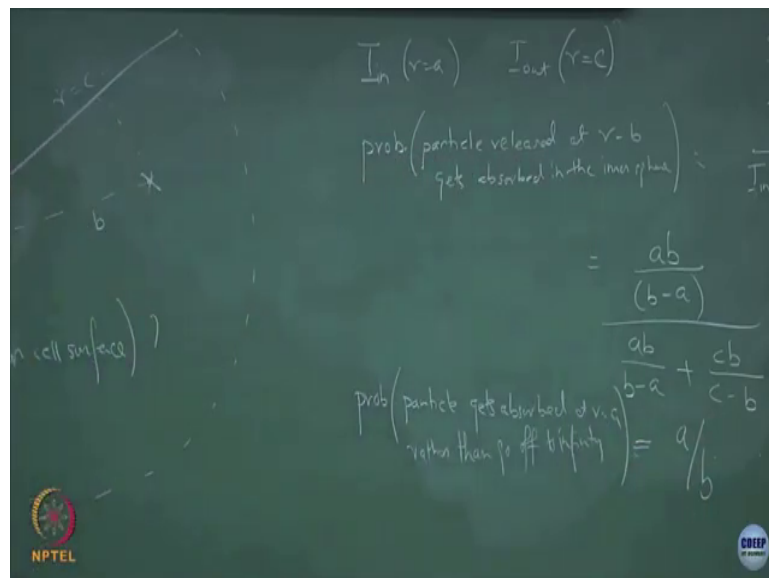 r = c
b
n cell surface) ?
I_in (r=a) I_out (r=c)
prob (particle released at r=b
gets absorbed in the inner sphere) =
I_in
= ab/(b-a)
ab/(b-a) + cb/(c-b)
prob (particle gets absorbed at r=a
rather than go off to infinity) = a/b
NPTEL
CDEEP